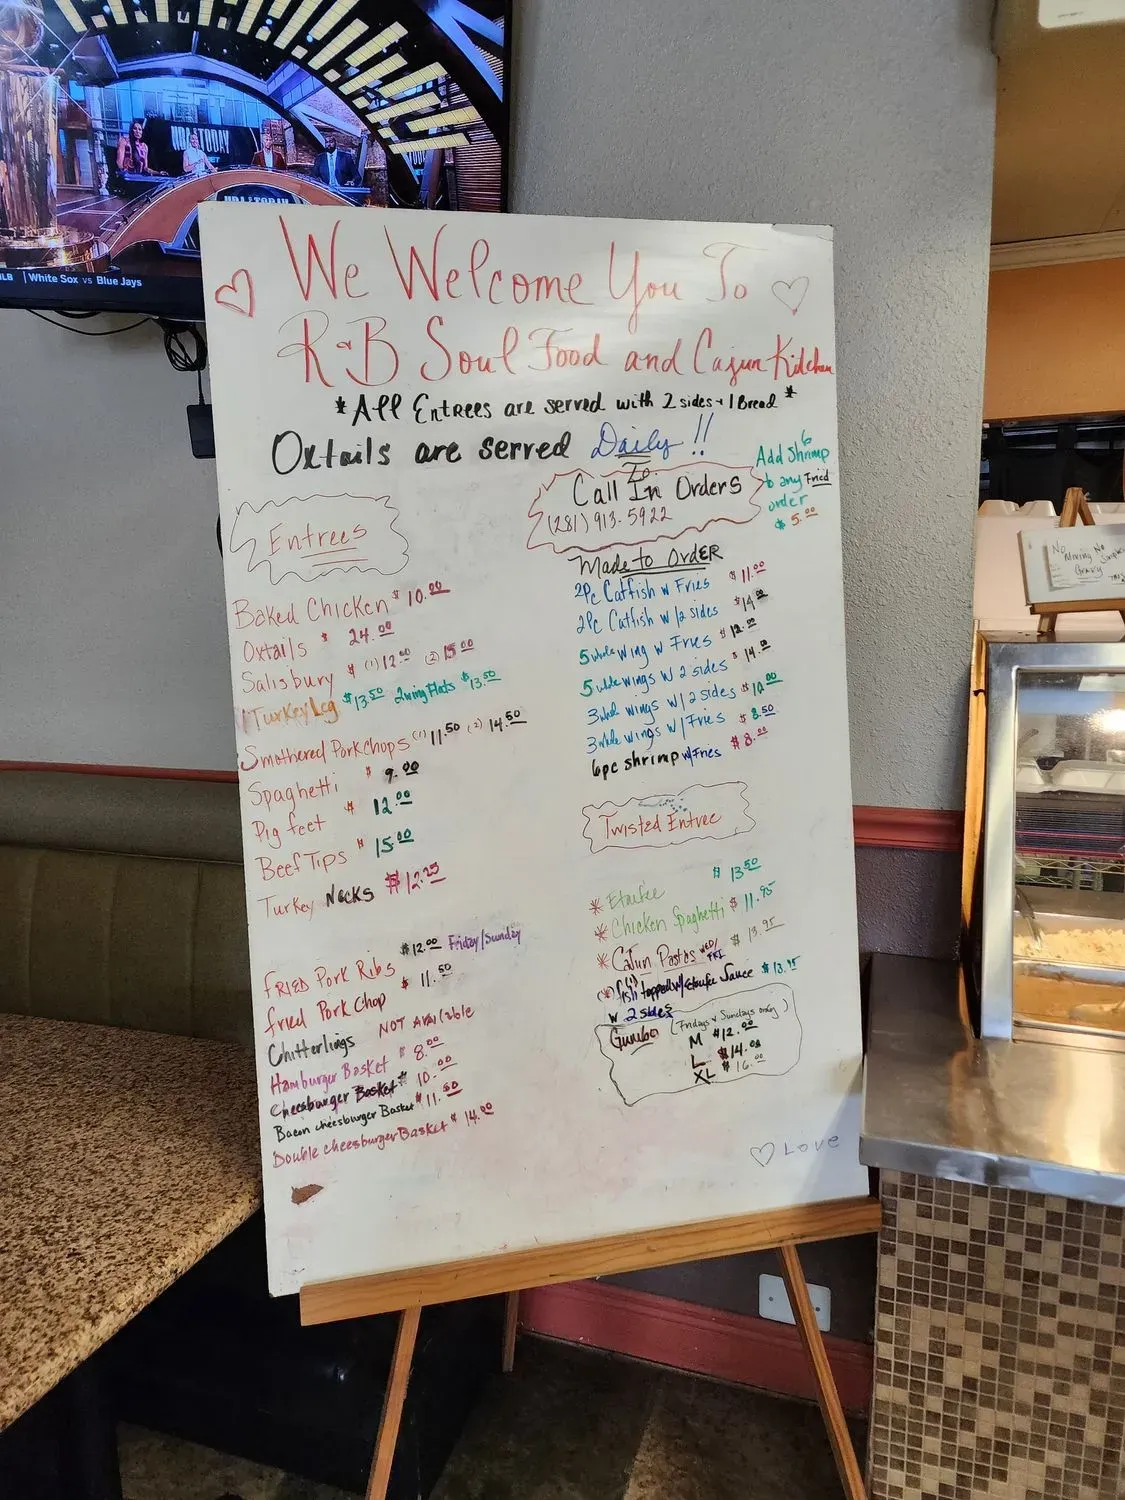 NBA TODAY
NBA TODAY
White Sox vs Blue Jays
We Welcome You To
R&B Soul Food and Cajun Kitchen
*All Entrees are served with 2 sides + 1 Bread *
Oxtails are served Daily !!
To
Call In Orders
(281) 913-5922
Add 6 Shrimp
to any Fried
order
$5.00
Entrees
Baked Chicken $10.00
Oxtails $24.00
Salisbury $ (1) 12.00 (2) 15.00
Turkey Leg $13.50 2 wing Flats $13.50
Smothered Pork Chops (1) 11.50 (2) 14.50
Spaghetti $9.00
Pig feet $12.00
Beef Tips $15.00
Turkey Necks $12.25
$12.00 Friday/Sunday
FRIED Pork Ribs
fried Pork Chop $11.50
Chitterlings NOT Available
Hamburger Basket $8.00
Cheesburger Basket $10.00
Bacon cheesburger Basket $11.50
Double cheesburger Basket $14.00
Made to OrdER
2Pc Catfish w Fries $11.00
2Pc Catfish w/2 sides $14.00
5 whole Wing w Fries $12.00
5 whole wings w 2 sides $14.00
3 whole wings w/2 sides $10.00
3 whole wings w/Fries $8.50
6pc shrimp w/Fries $8.00
Twisted Entree
* Etoufee $13.50
* Chicken Spaghetti $11.95
* Cajun Pastas WED/FRI $13.95
(*) fish topped w/ Etoufee Sauce $13.95
w 2 sides
Gumbo (Fridays & Sundays only)
M $12.00
L $14.00
XL $16.00
Love
No